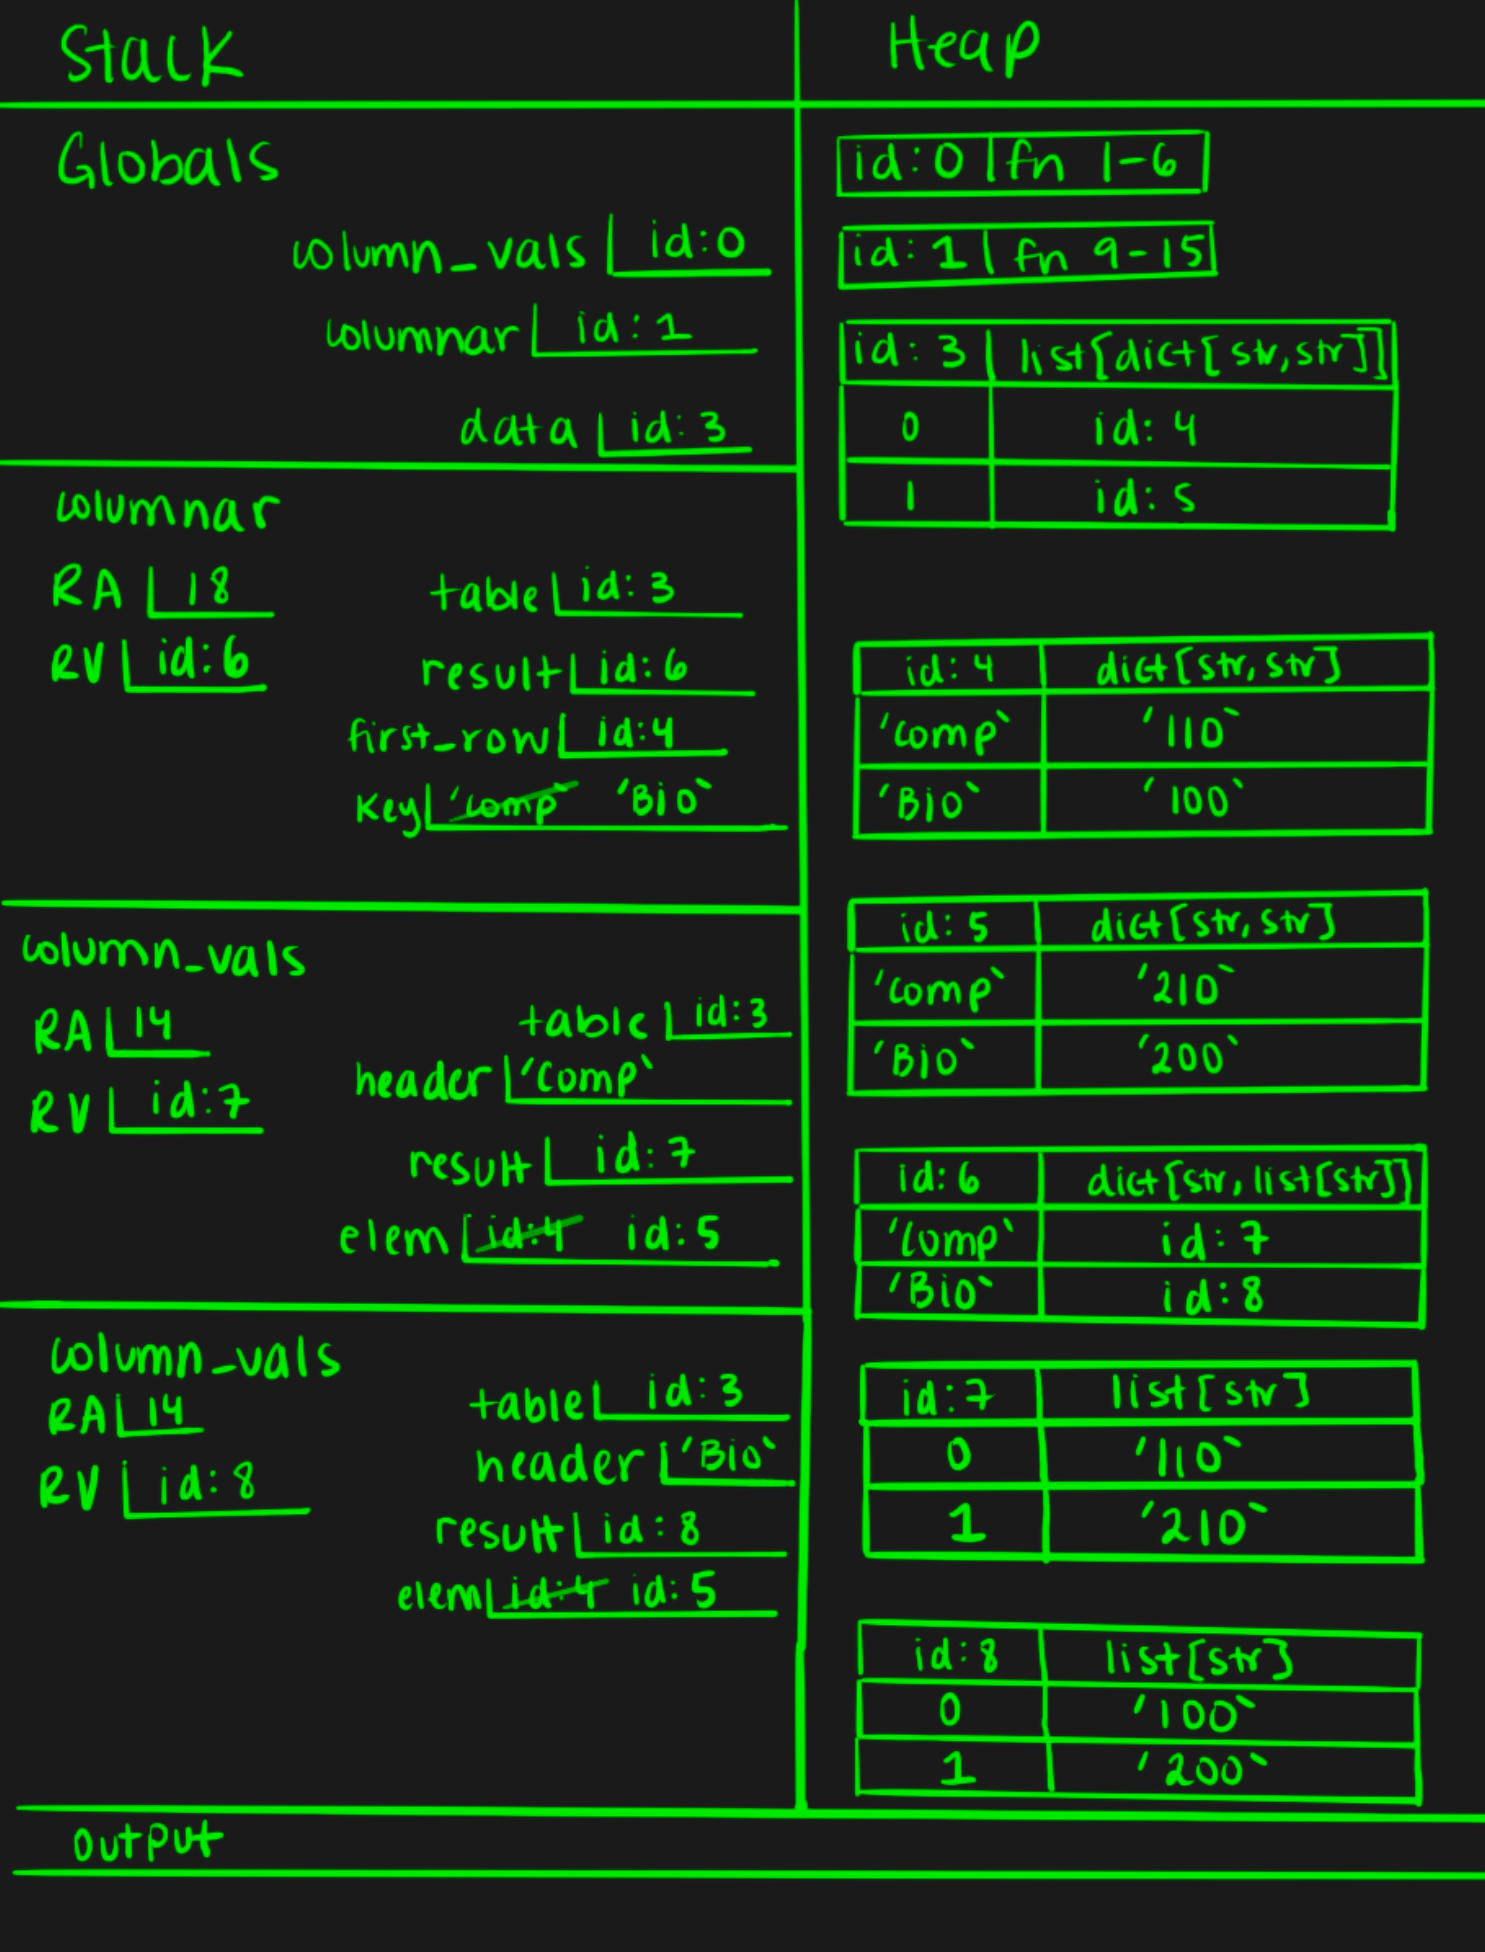 Stack
Globals
column_vals id:0
columnar id:1
data id:3
columnar
RA 18
RV id:6
table id:3
result id:6
first_row id:4
Key 'comp` 'Bio`
column_vals
RA 14
RV id:7
table id:3
header 'Comp`
result id:7
elem id:4 id:5
column_vals
RA 14
RV id:8
table id:3
header 'Bio`
result id:8
elem id:4 id:5
Heap
id:0 fn 1-6
id:1 fn 9-15
id:3 list[dict[str,str]]
0 id:4
1 id:5
id:4 dict[str,str]
'comp` '110`
'Bio` '100`
id:5 dict[str,str]
'comp` '210`
'Bio` '200`
id:6 dict[str,list[str]]
'Comp` id:7
'Bio` id:8
id:7 list[str]
0 '110`
1 '210`
id:8 list[str]
0 '100`
1 '200`
output